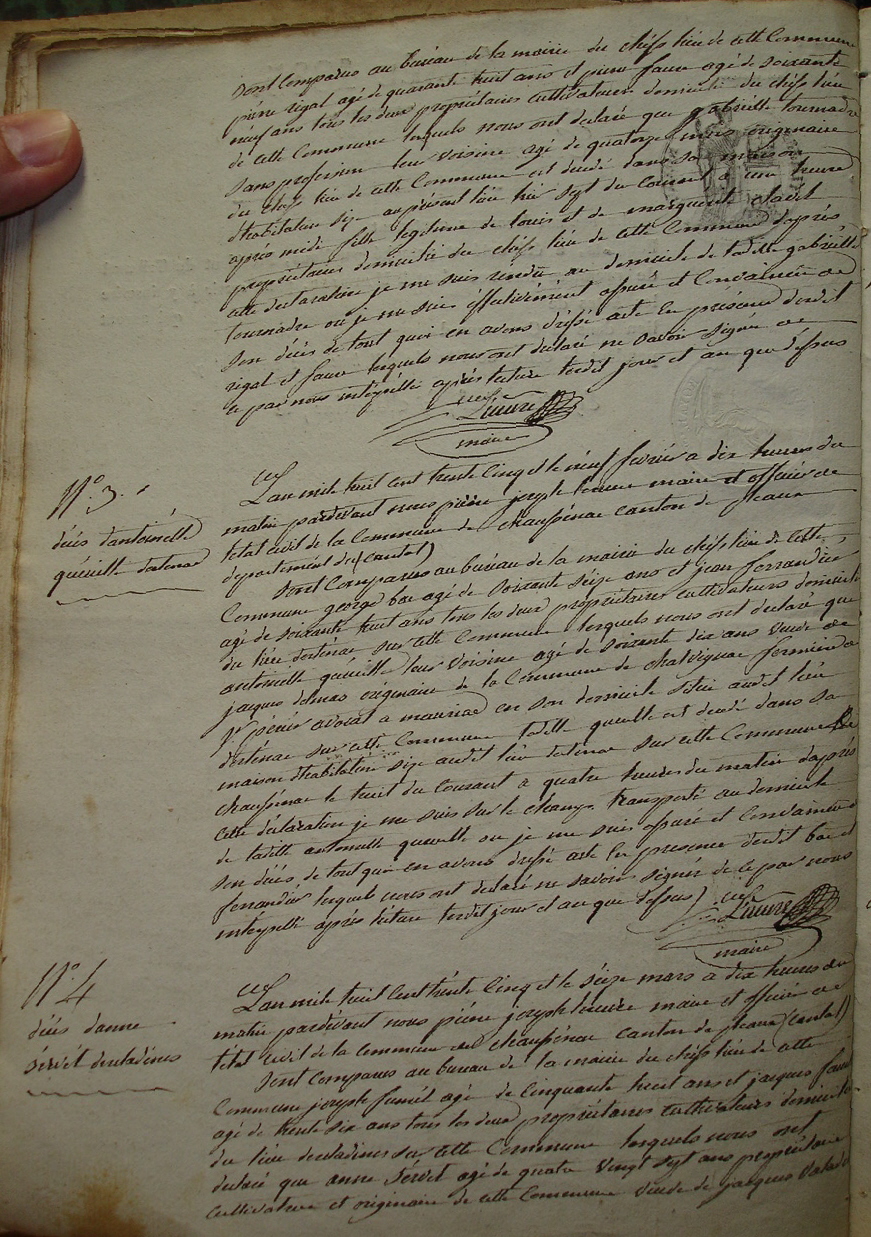 Sont Comparus au bureau de la mairie du chefs lieu de cette Commune
pierre rigal agé de quarante huit ans et pierre faure agé de soixante
neuf ans tous les deux propriétaires cultivateurs domicilié du chefs lieu
de cette Commune lesquels nous ont declaré que gabrielle tournadre
Sans profession leur voisine agé de quatorze mois originaire
du chefs lieu de cette Commune est decedé dans sa maison
d'habitation size au présent lieu hier sept du Courant a une heure
après midi fille legitime de louis et de marguerite
propriétaires domicilié du chefs lieu de cette Commune d'après
cette declaration je me suis rendu au domicile de ladite gabrielle
tournadre ou je me suis effectivement assuré et Convaincu de
Son décès de tout quoi en avons dressé acte en présence desdit
rigal et faure lesquels nous ont declaré ne savoir signer de
ce par nous interpellé après lecture lesdit jour et an que dessus
maire
N° 3.
décès d'antoinette
queuille d'ostenac
L'an mile huit cent trente Cinq et le neuf fevrier a dix heures du
matin pardevant nous pierre joseph maire et officier de
l'état civil de la Commune de chaussenac canton de pleaux
departement du (cantal)
Sont Comparus au bureau de la mairie du chefs lieu de cette
Commune george bac agé de Soixante Seize ans et jean ferrandier
agé de soixante huit ans tous les deux propriétaires cultivateurs domicilié
du lieu d'ostenac sur cette Commune lesquels nous ont declaré que
antoinette queuille leur voisine agé de soixante dix ans veuve de
jacques delmas originaire de la Commune de chalvignac fermier de
avocat a mauriac en son domicile situé audit lieu
d'ostenac sur cette Commune ladite queuille est decedé dans sa
maison d'habitation size audit lieu d'ostenac sur cette Commune de
chaussenac le huit du Courant a quatre heures du matin d'après
cette déclaration je me suis sur le champ transporté au domicile
de ladite antoinette queuille ou je me suis assuré et Convaincu de
Son décès de tout quoi en avons dressé acte en presence desdit bac et
ferrandier lesquels nous ont declaré ne savoir signer de ce par nous
interpellé après lecture lesdit jour et an que dessus
maire
N° 4
décès d'anne
Servet
L'an mile huit Cent trente Cinq et le Seize mars a dix heures du
matin pardevant nous pierre joseph maire et officier de
l'état civil de la Commune de chaussenac canton de pleaux (cantal)
Sont Comparus au bureau de la mairie du chefs lieu de cette
Commune joseph agé de Cinquante huit ans et jacques faure
agé de trente six ans tous les deux propriétaires cultivateurs domicilié
du lieu sur cette Commune lesquels nous ont
declaré que anne Servet agé de quatre vingt sept ans propriétaire
Cultivatrice et originaire de cette Commune veuve de jacques